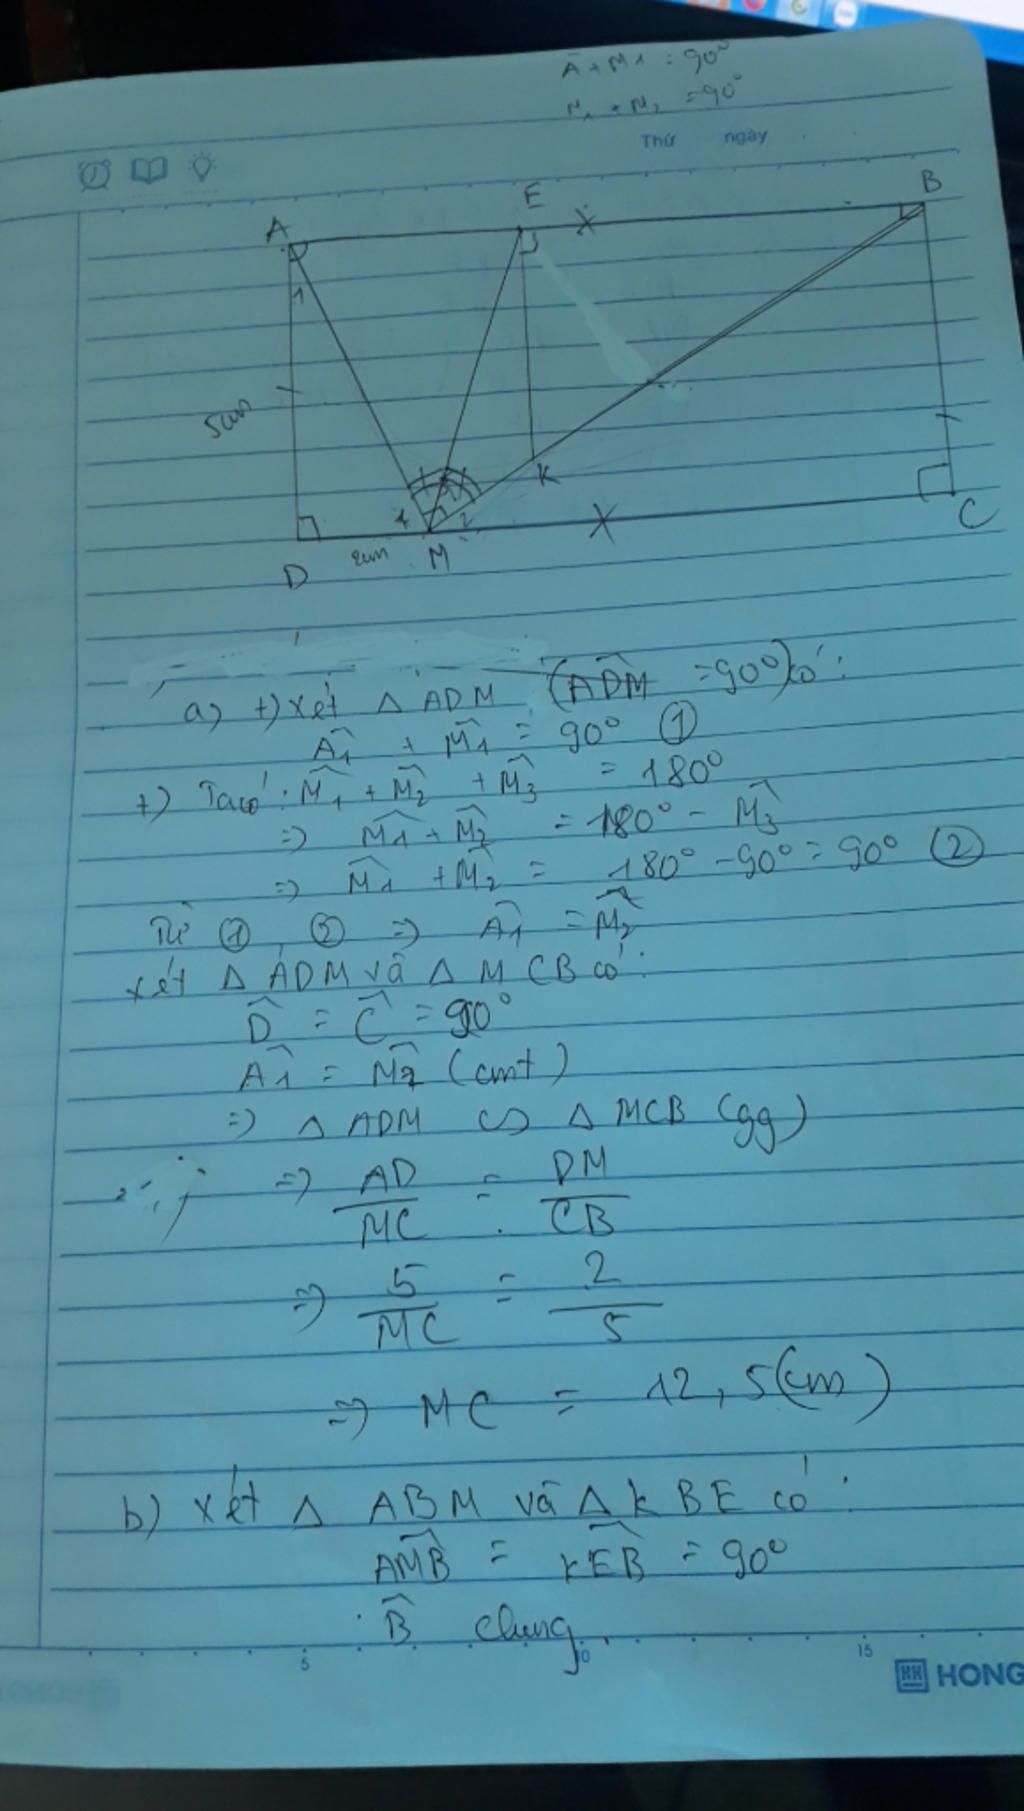 A + M1 = 90°
M1 + M2 = 90°
Thứ ngày
E
B
A
1
5cm
K
1 2
C
2cm M
D
a) +) Xét △ ADM (ADM̂ = 90°) có:
Â1 + M̂1 = 90° ①
+) Ta có: M̂1 + M̂2 + M̂3 = 180°
=> M̂1 + M̂2 = 180° - M̂3
=> M̂1 + M̂2 = 180° - 90° = 90° ②
Từ ①, ② => Â1 = M̂2
xét △ ADM và △ MCB có:
D̂ = Ĉ = 90°
Â1 = M̂2 (cmt)
=> △ ADM ∽ △ MCB (gg)
=> AD/MC = DM/CB
=> 5/MC = 2/5
=> MC = 12,5(cm)
b) xét △ ABM và △ KBE có:
AMB̂ = KEB̂ = 90°
B̂ chung
5 10 15
HONG